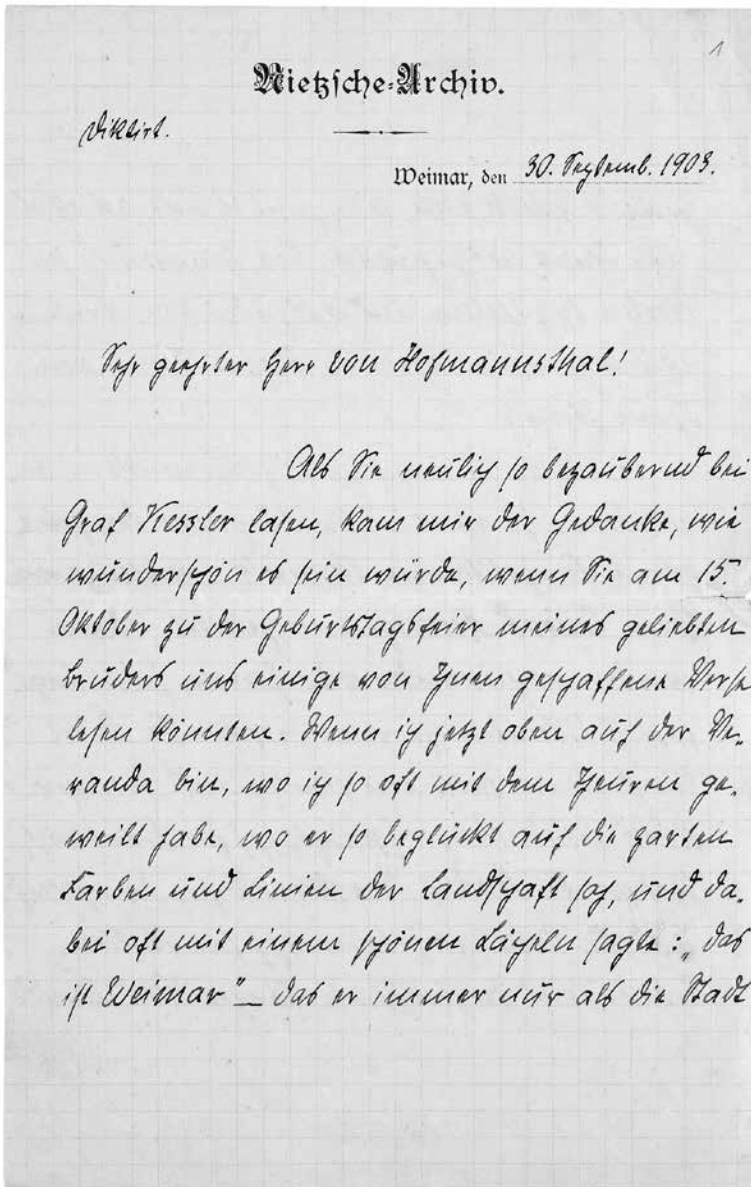 1
Nietzsche-Archiv.
Diktirt.
Weimar, den 30. Septemb. 1903.
Sehr geehrter Herr von Hofmannsthal!
Als Sie neulich so bezaubernd bei
Graf Kessler lasen, kam mir der Gedanke, wie
wunderschön es sein würde, wenn Sie am 15.
Oktober zu der Geburtstagsfeier meines geliebten
Bruders uns einige von Ihnen geschaffene Verse
lesen könnten. Wenn ich jetzt oben auf der Ve-
randa bin, wo ich so oft mit dem Theuren ge-
weilt habe, wo er so beglückt auf die zarten
Farben und Linien der Landschaft sah, und da-
bei oft mit einem schönen Lächeln sagte: „das
ist Weimar" – das er immer nur als die Stadt